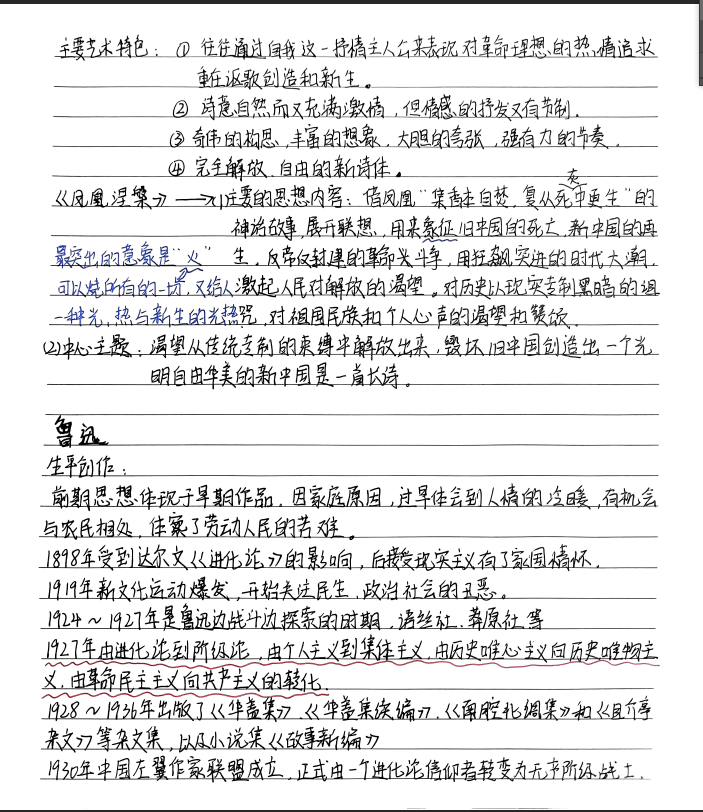 主要艺术特色：① 往往通过自我这一抒情主人公来表现对革命理想的热情追求
重在讴歌创造和新生。
② 诗意自然而又充满激情，但情感的抒发又有节制．
③ 奇伟的构思，丰富的想象，大胆的夸张，强有力的节奏．
④ 完全解放．自由的新诗体。
《凤凰涅槃》→ 1)主要的思想内容：借凤凰“集香木自焚，复从死中更生”的
神话故事，展开联想，用来象征旧中国的死亡，新中国的再
最突出的意象是“火” 生，反帝反封建的革命斗争，用狂飙突进的时代大潮，
可以烧所有的一切，又给人 激起人民对解放的渴望。对历史以现实专制黑暗的诅
一种光，热与新生的光热 咒，对祖国民族和个人心声的渴望和赞颂．
(2)中心主题：渴望从传统专制的束缚中解放出来，毁坏旧中国创造出一个光
明自由华美的新中国是一首长诗。
鲁迅
生平创作：
前期思想体现于早期作品，因家庭原因，过早体会到人情的冷暖，有机会
与农民相处，体察了劳动人民的苦难。
1898年受到达尔文《进化论》的影响，后接受现实主义有了家国情怀．
1919年新文化运动爆发，开始关注民生．政治社会的丑恶。
1924～1927年是鲁迅边战斗边探索的时期，语丝社．莽原社．等
1927年由进化论到阶级论，由个人主义到集体主义，由历史唯心主义向历史唯物主
义．由革命民主主义向共产主义的转化．
1928～1936年出版了《华盖集》．《华盖集续编》．《南腔北调集》和《且介亭
杂文》等杂文集，以及小说集《故事新编》
1930年中国左翼作家联盟成立，正式由一个进化论信仰者转变为无产阶级战士．